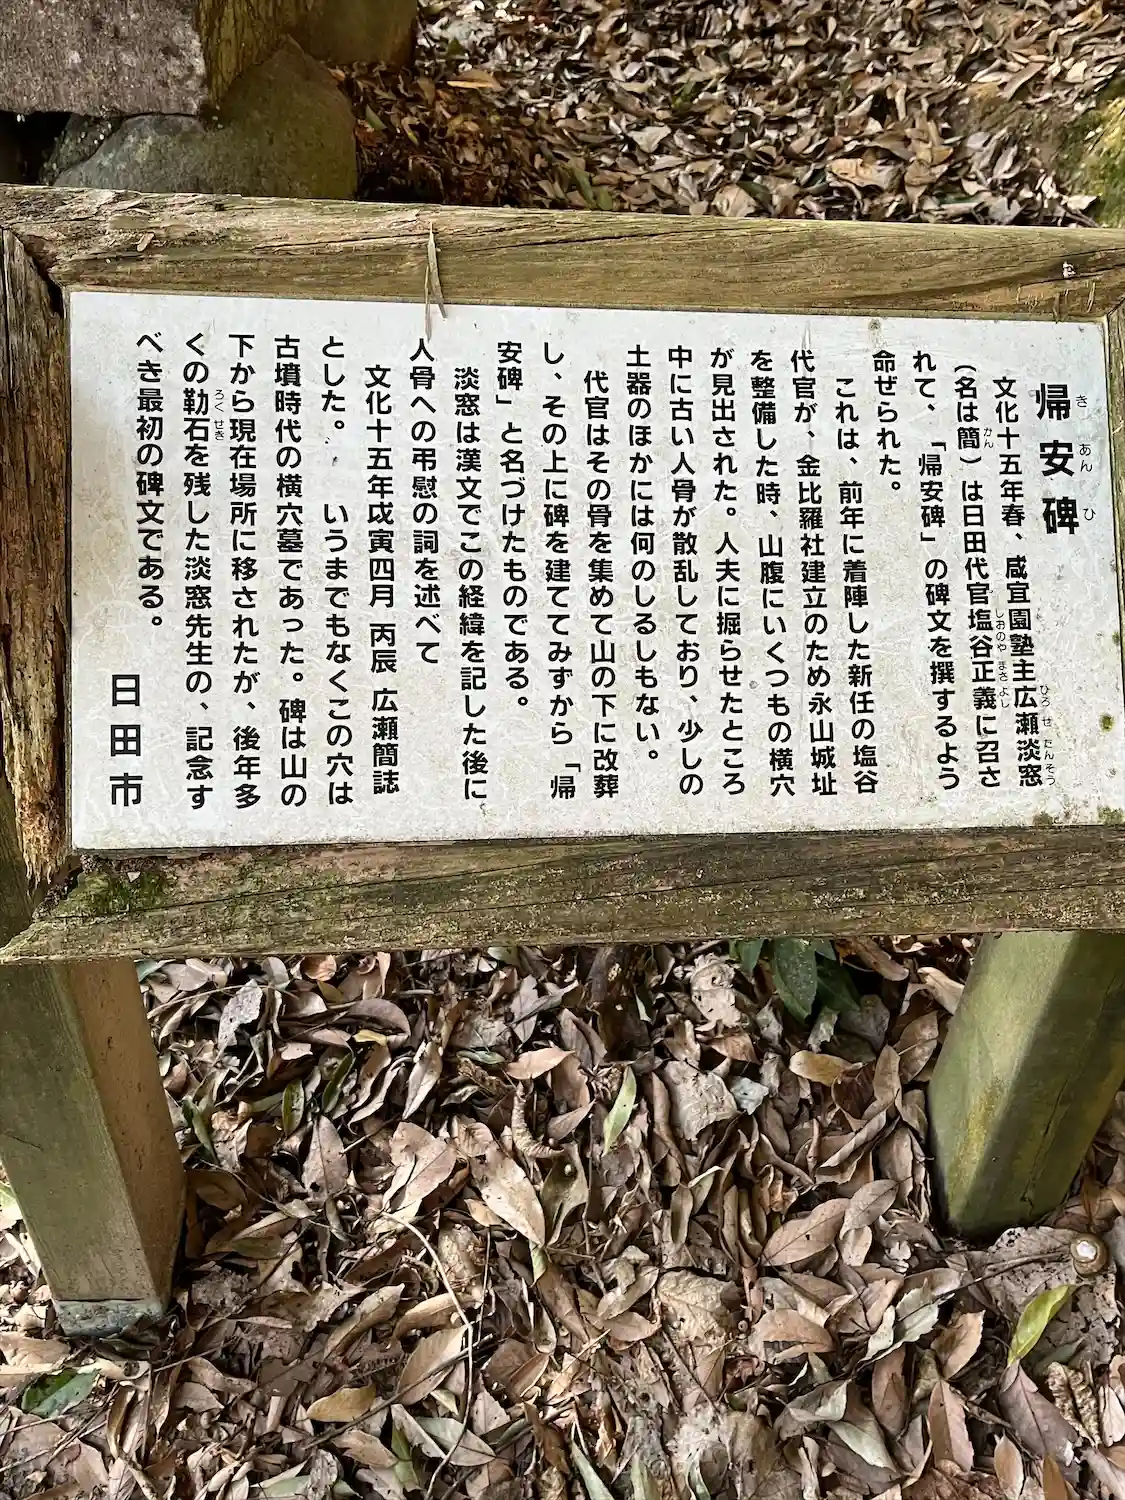 帰安碑
文化十五年春、咸宜園塾主広瀬淡窓
(名は簡)は日田代官塩谷正義に召さ
れて、「帰安碑」の碑文を撰するよう
命ぜられた。
これは、前年に着陣した新任の塩谷
代官が、金比羅社建立のため永山城址
を整備した時、山腹にいくつもの横穴
が見出された。人夫に掘らせたところ
中に古い人骨が散乱しており、少しの
土器のほかには何のしるしもない。
代官はその骨を集めて山の下に改葬
し、その上に碑を建ててみずから「帰
安碑」と名づけたものである。
淡窓は漢文でこの経緯を記した後に
人骨への弔慰の詞を述べて
文化十五年戊寅四月 丙辰 広瀬簡誌
とした。 いうまでもなくこの穴は
古墳時代の横穴墓であった。碑は山の
下から現在場所に移されたが、後年多
くの勒石を残した淡窓先生の、記念す
べき最初の碑文である。
日田市